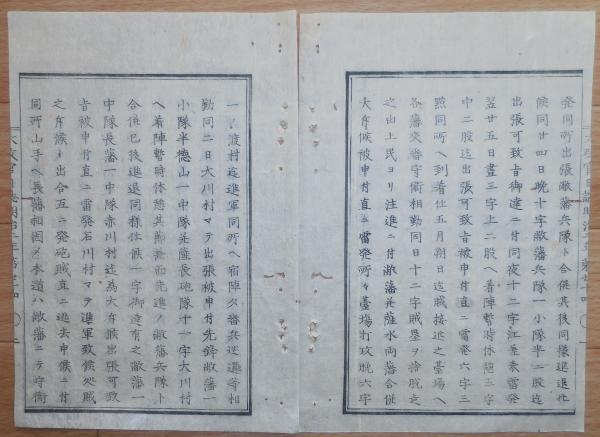 発同所出張敝藩兵隊ト合併其後同様進退仕
候同廿四日晩十字敝藩兵隊一小隊半二股迄
出張可致旨御達ニ付同夜十二字江差表雷発
翌廿五日昼三字上二股ヘ着陣暫時休憩五字
中二股迄出張可致旨被申付直ニ雷発六字三
照同所ヘ到着仕五月朔日迄賊接近之台場ヘ
各藩交番守衛相勤同日十二字賊塁ヲ捨脱走
之由土民ヨリ注進ニ付敝藩並薩水両藩合併
大斥候被申付直ニ雷発所々台場打攻晩六字
一ノ渡村迄進軍同所ヘ宿陣夕番兵巡邏等相
勤同二日大川村マテ出張被申付先鋒敝藩一
小隊半徳山一中隊並薩長砲隊十一字大川村
ヘ着陣暫時休憩其節先進ノ敝藩兵隊ト
合併已後進退同様仕候一字御達有之敝藩一
中隊長藩一中隊赤川村迄為大斥候出張可致
旨被申付直ニ雷発石川村マテ進軍致候処賊
之斥候ト出合互ニ発砲賊直ニ逃去申候ニ付
同所山手ヘ長藩相固メ本道ハ敝藩ニテ守衛